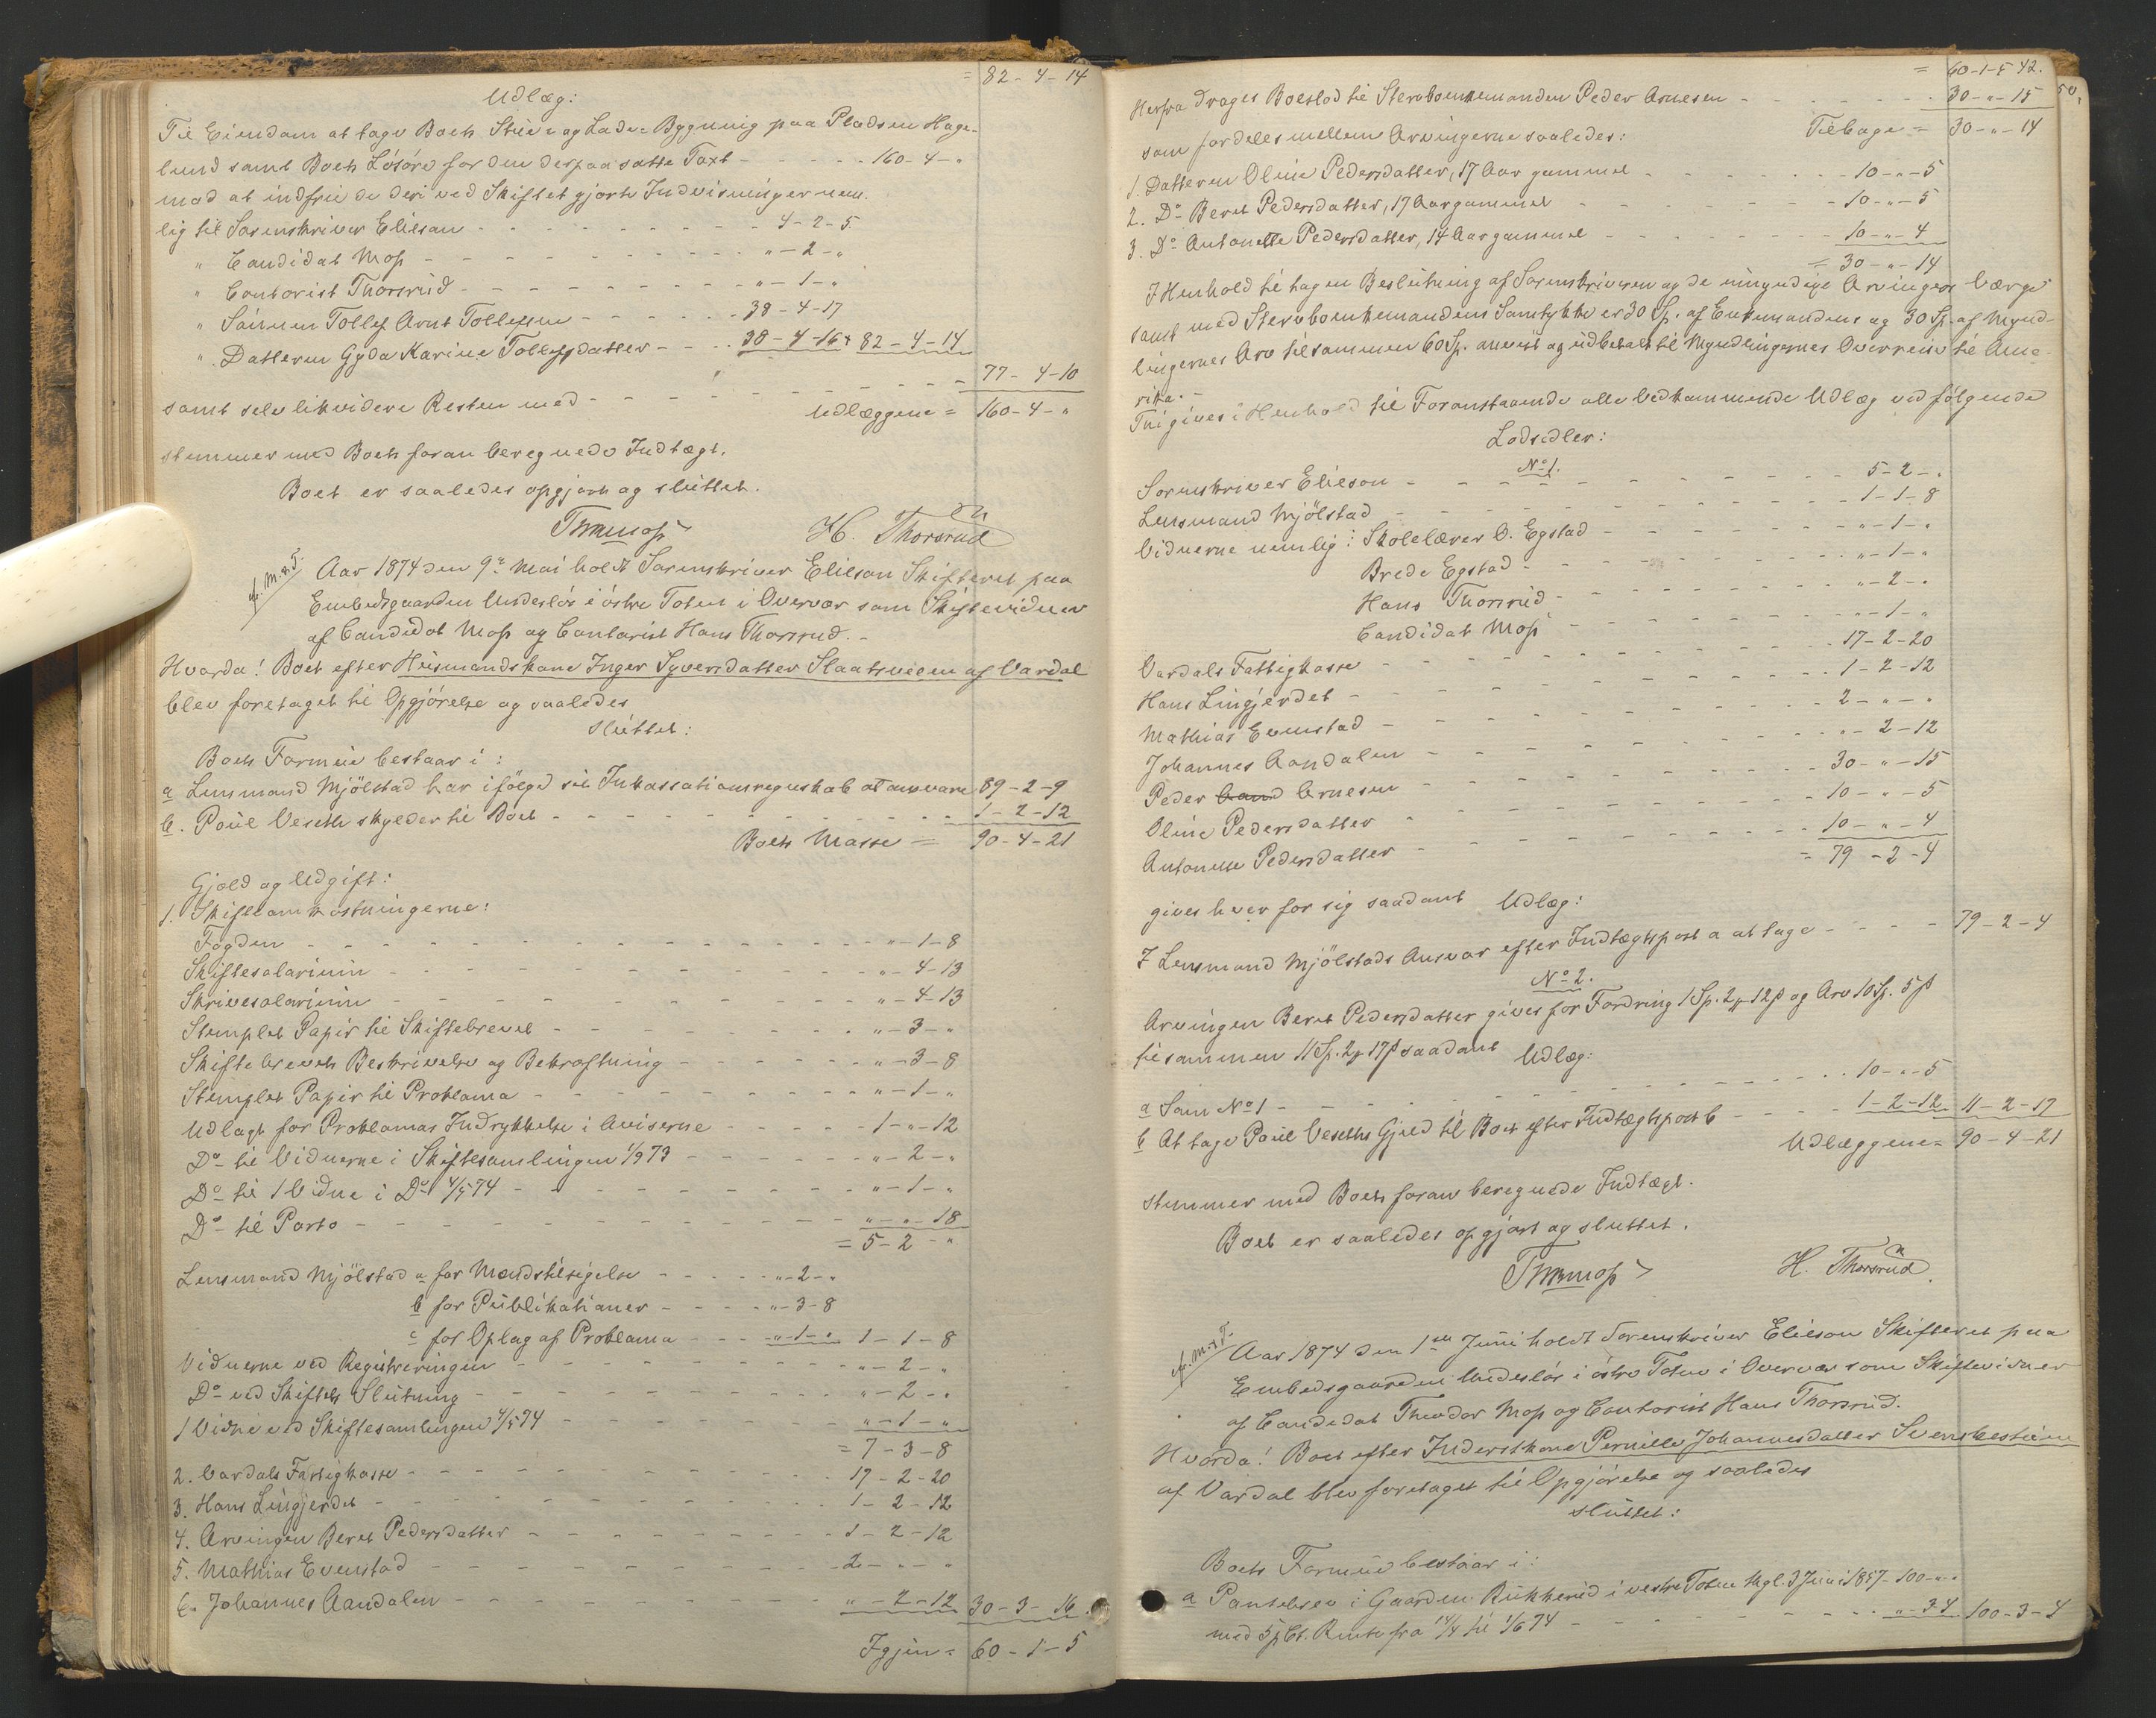 = 82 - 4 - 14
Udlæg:
Til Eiendom at tage Boets Stue- og Lade-Bygning paa Pladsen Hage-
lund samt Boets Løsøre for den derpaa satte Taxt - - - - 160 - 4 - "
mod at indfrie de deri ved Skiftet gjorte Indvisninger nem-
lig til Sorenskriver Elieson - - - - 4 - 2 - 5
" Candidat Moss - - - - " - 2 - "
" Contorist Thorsrud - - - - " - 1 - "
" Sønnen Tollef Arnt Tollefsen - - - - 38 - 4 - 17
" Datteren Gyda Karine Tollefsdatter - - - - 38 - 4 - 16 + 82 - 4 - 14
samt selv likvidere Resten med - - - - 77 - 4 - 10
Udlæggene = 160 - 4 - "
stemmer med Boets foran beregnede Indtægt.
Boet er saaledes opgjort og sluttet.
Th Moss H. Thorsrud
Aar 1874 den 9de Mai holdt Sorenskriver Elieson Skifteret paa
Embedsgaarden Underlös i östre Toten i Overvær som Skiftevidner
af Candidat Moss og Contorist Hans Thorsrud. -
Hvorda! Boet efter Huusmandskone Inger Syversdatter Slaatsveen af Vardal
blev foretaget til Opgjörelse og saaledes
sluttet:
Boets Formue bestaar i:
a Lensmand Mjölstad har ifølge sit Inkassationsregnskab at ansvare 89 - 2 - 9
b. Poul Veseth skylder til Boet - - - - 1 - 2 - 12
Boets Masse = 90 - 4 - 21
Gjæld og Udgift:
1. Skifteomkostningerne:
Fogden - - - - " - 1 - 8
Skiftesalarium - - - - " - 4 - 13
Skrivesalarium - - - - " - 4 - 13
Stemplet Papir til Skiftebrevet - - - - " - 3 - "
Skiftebrevets Beskrivelse og Bekræftning - - - - " - 3 - 8
Stemplet Papir til Proklama - - - - " - 1 - "
Udlagt for Proklamas Indrykkelse i Aviserne - - - - 1 - " - 12
Do til Vidnerne i Skiftesamlingen 1/9 73 - - - - " - 2 - "
Do til 1 Vidne i Do 4/5 74 - - - - " - 1 - "
Do til Porto - - - - " - " - 18
= 5 - 2 - "
Lensmand Mjölstad a for Mændstilsigelse - - - - " - 2 - "
b for Publikationer - - - - " - 3 - 8
c for Oplag af Proklama - - - - " - 1 - " 1 - 1 - 8
Vidnerne ved Registreringen - - - - " - 2 - "
Do ved Skiftets Slutning - - - - " - 2 - "
1 Vidne ved Skiftesamlingen 4/5 74 - - - - " - 1 - "
= 7 - 3 - 8
2. Vardals Fattigkasse - - - - 17 - 2 - 20
3. Hans Lingjerdet - - - - 1 - 2 - 12
4. Arvingen Beret Pedersdatter - - - - 1 - 2 - 12
5. Mathias Evenstad - - - - 2 - " - "
6. Johannes Aandalen - - - - " - 2 - 12 30 - 3 - 16
Igjen = 60 - 1 - 5
50.
= 60 - 1 - 5 42.
Herfra drages Boeslod til Stervboenkemanden Peder Arnesen - - - - 30 - " - 15
Tilbage = 30 - " - 14
som fordeles mellem Arvingerne saaledes:
1. Datteren Oline Pedersdatter, 17 Aar gammel - - - - 10 - " - 5
2. Do Beret Pedersdatter, 17 Aar gammel - - - - 10 - " - 5
3. Do Antonette Pedersdatter, 14 Aar gammel - - - - 10 - " - 4
= 30 - " - 14
I Henhold til tagen Beslutning af Sorenskriveren og de umyndige Arvingers Værge
samt med Stervboenkemandens Samtykke er 30 Sp. af Enkemandens og 30 Sp. af Mynd-
lingernes Arv tilsammen 60 Sp. anvist og udbetalt til Myndlingernes Overreise til Ame-
rika. -
Thi gives i Henhold til Foranstaaende alle Vedkommende Udlæg ved følgende
Lodsedler:
No 1.
Sorenskriver Elieson - - - - 5 - 2 - "
Lensmand Mjölstad - - - - 1 - 1 - 8
Vidnerne nemlig: Skolelærer O. Egstad - - - - " - 1 - "
Brede Egstad - - - - " - 1 - "
Hans Thorsrud - - - - " - 2 - "
Candidat Moss - - - - " - 1 - "
Vardals Fattigkasse - - - - 17 - 2 - 20
Hans Lingjerdet - - - - 1 - 2 - 12
Mathias Evenstad - - - - 2 - " - "
Johannes Aandalen - - - - " - 2 - 12
Peder Arnesen - - - - 30 - " - 15
Oline Pedersdatter - - - - 10 - " - 5
Antonette Pedersdatter - - - - 10 - " - 4
= 79 - 2 - 4
gives hver for sig saadant Udlæg:
I Lensmand Mjölstads Ansvar efter Indtægtspost a at tage - - - - 79 - 2 - 4
No 2.
Arvingen Beret Pedersdatter gives for Fordring 1 Sp. 2 ¥ 12 ß og Arv 10 Sp. 5 ß
tilsammen 11 Sp. 2 ¥ 17 ß saadant Udlæg:
a Som No 1 - - - - 10 - " - 5
b At tage Poul Veseths Gjæld til Boet efter Indtægtspost b - - - - 1 - 2 - 12 11 - 2 - 17
Udlæggene = 90 - 4 - 21
stemmer med Boets foran beregnede Indtægt.
Boet er saaledes opgjort og sluttet.
Th Moss H. Thorsrud
Aar 1874 den 1ste Juni holdt Sorenskriver Elieson Skifteret paa
Embedsgaarden Underlös i östre Toten i Overvær som Skiftevidner
af Candidat Theodor Moss og Contorist Hans Thorsrud.
Hvorda! Boet efter Inderstkone Pernille Johannesdatter Svensbestuen
af Vardal blev foretaget til Opgjörelse og saaledes
sluttet:
Boets Formue bestaar i:
a Pantebrev i Gaarden Rukkerud i vestre Toten thgl. 3 Juni 1857 - 100 - " - "
med 5 pCt. Rente fra 14/4 til 1/6 74 - - - - " - 3 - 4 100 - 3 - 4